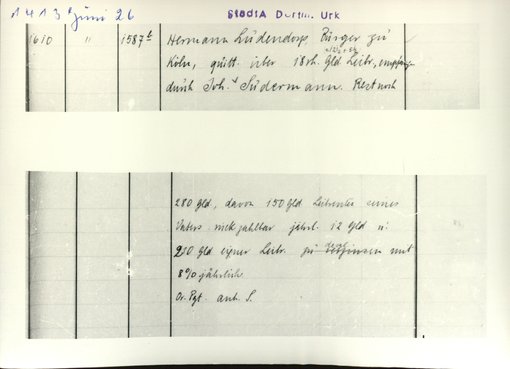 1413 Juni 26
StadtA Dortm. Urk
1610 " 1587t Hermann Lüdendorp, Bürger zu
Köln, quitt. über 18rh. Gld Leibr.,
durch Joh. Südermann. Rest noch
280 Gld, davon 150 Gld Leibrente seines
Vaters rückzahlbar jährl. 12 Gld u.
200 Gld eigner Leibr. zu mit
8% jährlich
Or. Pgt. anh. S.